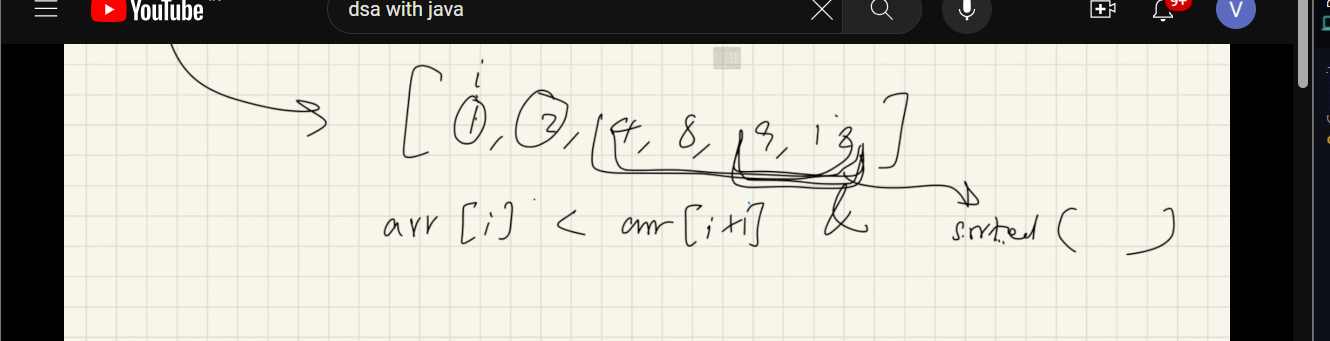 YouTube
dsa with java
9+
V
i
[ 1, 2, 4, 8, 9, 12, ]
arr [i] < arr [i+1] & sorted ( )